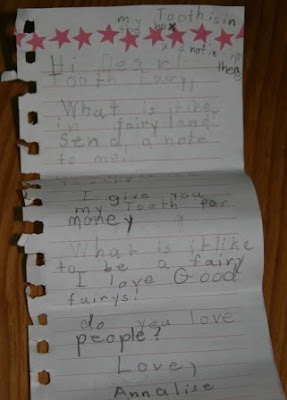 my Tooth is in
the box
it is not in
there
Hi Dear
Tooth Fairy,
What is it like
in fairy land?
Send a note
to me.
I give you
my Tooth for
money
What is it like
to be a fairy
I love Good
fairys!
do you love
people?
Love,
Annalise